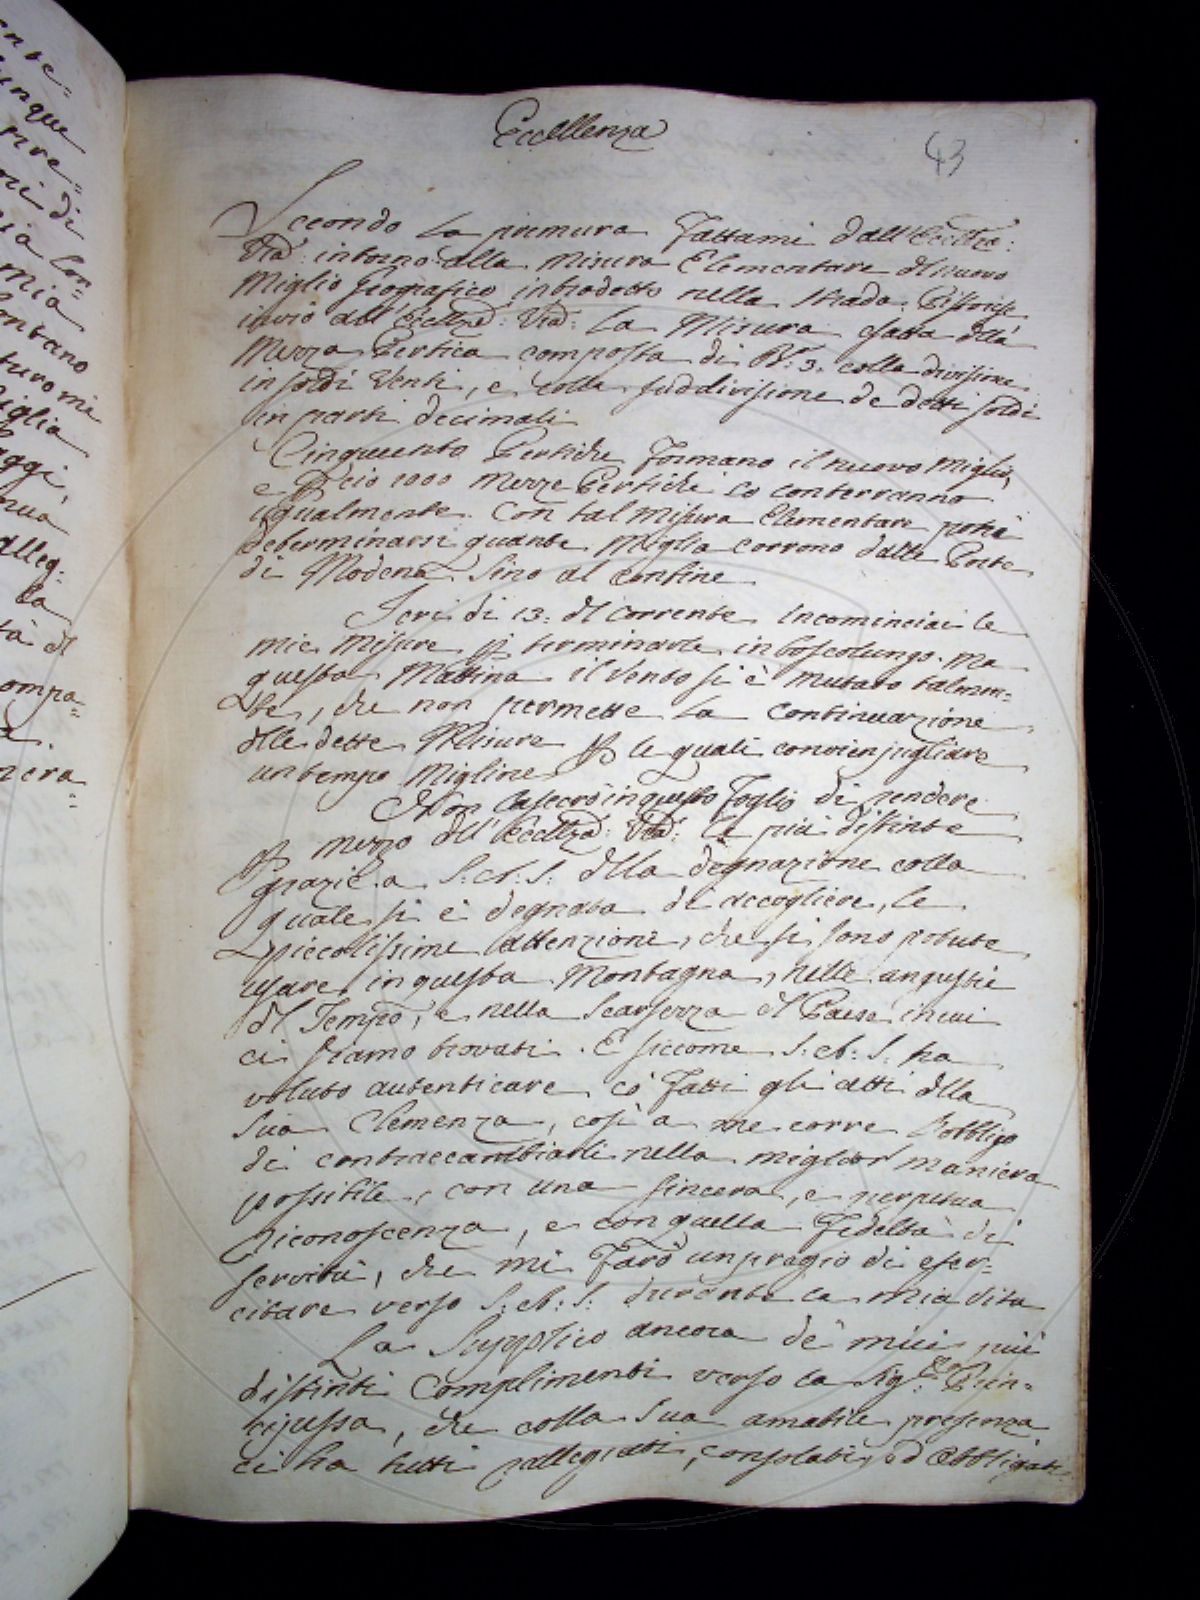 ente=
unque
pre=
ni di
ia Con=
mia
ontano
turo mi
iglia
aggi,
nua
alleg=
la
tà dl
ompa=
a
nera=
Eccellenza
43
Secondo la premura Fattami dall'Ecclza:
Vra: intorno alla Misura Elementare dl nuovo
Miglio Geografico introdotto nella Strada
invio all'Ecclza: Vra: la Misura esatta dlla
Mezza Pertica composta di Br: 3. colla divisione
in soldi Venti, e colla suddivisione de detti soldi
in parti decimali
Cinquecento Pertiche Formano il nuovo Miglio,
e p ciò 1000 Mezze Pertiche lo conterranno
ugualmente. Con tal Misura Elementare potrà
determinarsi quante Miglia corrono dalle Porte
di Modena Sino al confine
Ieri di 13: dl corrente Incominciai le
mie Misure p terminarle in boscolungo. Ma
questa Mattina il Vento si è mutato talmen=
te, che non permette la continuazione
dlle dette Misure p le quali convien pigliare
un tempo Migliore
Non lascerò in questo Foglio di rendere
p mezzo dll'Ecclza: Vra: le più distinte
grazie a S: A: S: dlla degnazione colla
quale si è degnata di accogliere, le
piccolissime attenzioni, che si sono potute
usare in questa Montagna, nelle angustie
dl Tempo, e nella Scarsezza dl Paese in cui
ci siamo trovati. E siccome S: A: S: ha
voluto autenticare co' Fatti gli atti dlla
Sua Clemenza, così a me corre l'obbligo
di contraccambiarli nella miglior maniera
possibile, con una sincera, e perpetua
riconoscenza, e con quella Fedeltà di
servitù, che mi Farò un pregio di eser=
citare verso S: A: S: durante la mia vita
La Supplico ancora de' miei più
distinti Complimenti verso la Sig:ra Prin=
cipessa, che colla Sua amabile presenza
ci ha tutti rallegrati, consolati, ed obbligati